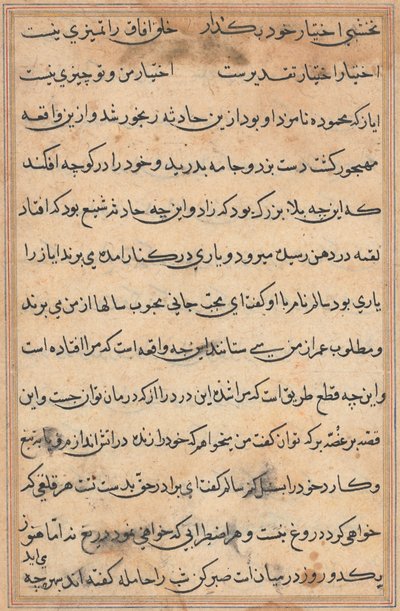 نخشبی اختیار خود بگذار خلق آفاق را تمیزی نیست
اختیار اختیار تقدیر ست اختیار من و تو چیزی نیست
ایاز که محموده نامزد او بود ازین حادثه رنجور شد و ازین واقعه
مهجور گشت دست بزد و جامه بدرید و خود را در کوچه افکند
که این چه بلاء بزرگ بود که زاد و این چه حادثه شنیع بود که افتاد
لقمه در دهن رسیده میرود و یاری در کنار آمده می برند ایاز را
یاری بود سالم نام با او گفت ای محب جانی محبوب سالها از من می برند
و مطلوب عمر از من می ستانند این چه واقعه است که مرا افتاده است
و این چه قطع طریق است که مرا شده این درد را از که درمان توان جست و این
قصه پر غصه بر که توان گفت من میخواهم که خود را زنده در آتش اندازم و یا به تیغ
و کارد خود را بسمل کنم سالم گفت ای برادر حق بدست تست هر قلقی که
خواهی کرد دروغ نیست و هر اضطرابی که خواهی نمود دریغ نه اما هنوز
یکدو روز در میان است صبر کن شب را حامله گفته اند ببین چه
می زاید